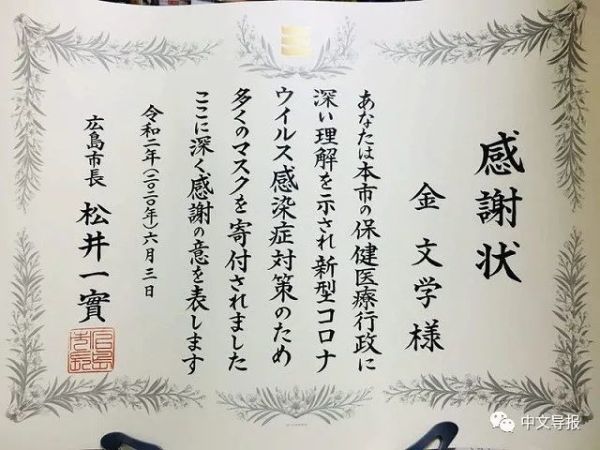 感謝状
金文学様
あなたは本市の保健医療行政に
深い理解を示され新型コロナ
ウイルス感染症対策のため
多くのマスクを寄付されました
ここに深く感謝の意を表します
令和二年(二〇二〇年)六月三日
広島市長 松井一實
中文导报